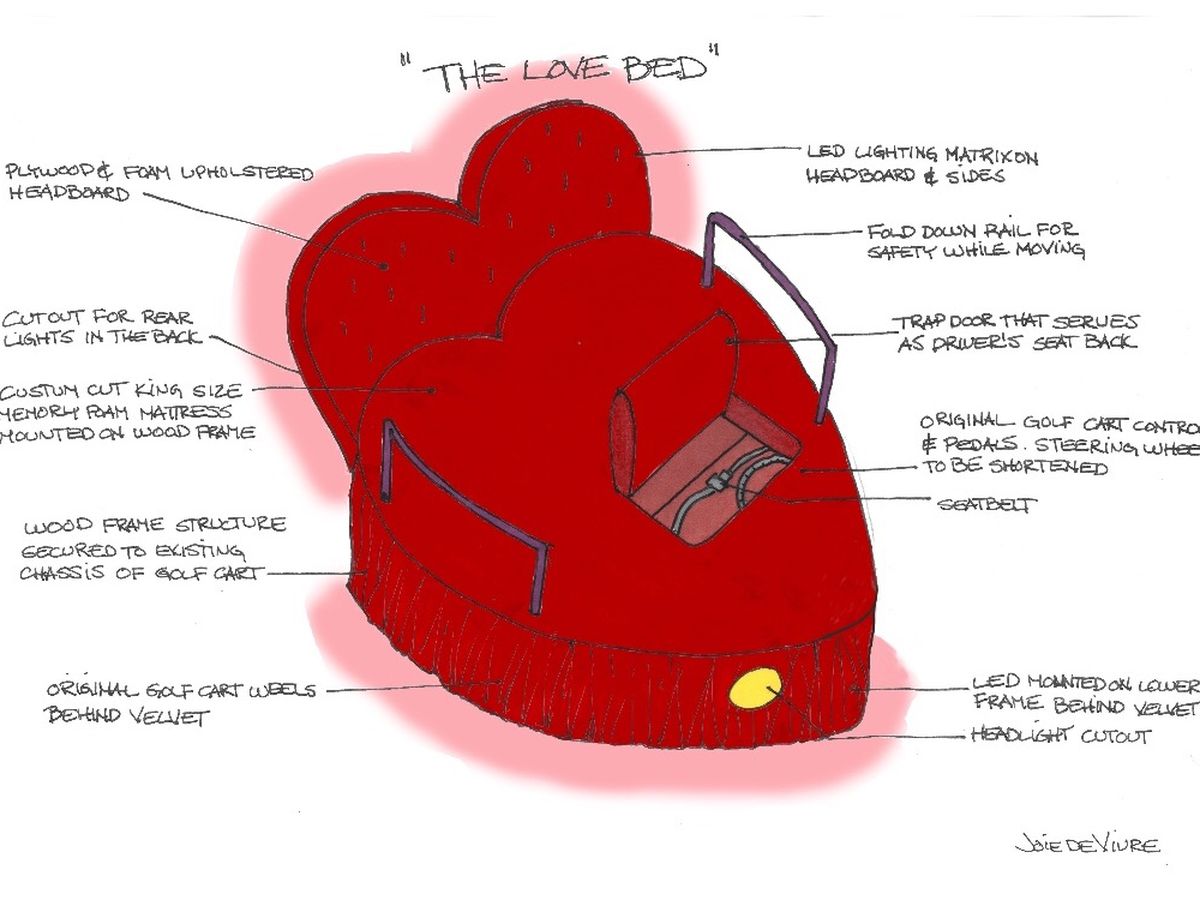 "THE LOVE BED"
PLYWOOD & FOAM UPHOLSTERED
HEADBOARD
CUTOUT FOR REAR
LIGHTS IN THE BACK
CUSTUM CUT KING SIZE
MEMORY FOAM MATTRESS
MOUNTED ON WOOD FRAME
WOOD FRAME STRUCTURE
SECURED TO EXISTING
CHASSIS OF GOLF CART
ORIGINAL GOLF CART WEELS
BEHIND VELVET
LED LIGHTING MATRIX ON
HEADBOARD & SIDES
FOLD DOWN RAIL FOR
SAFETY WHILE MOVING
TRAP DOOR THAT SERVES
AS DRIVER'S SEAT BACK
ORIGINAL GOLF CART CONTRO
& PEDALS. STEERING WHEE
TO BE SHORTENED
SEATBELT
LED MOUNTED ON LOWER
FRAME BEHIND VELVET
HEADLIGHT CUTOUT
JOIE DE VIVRE